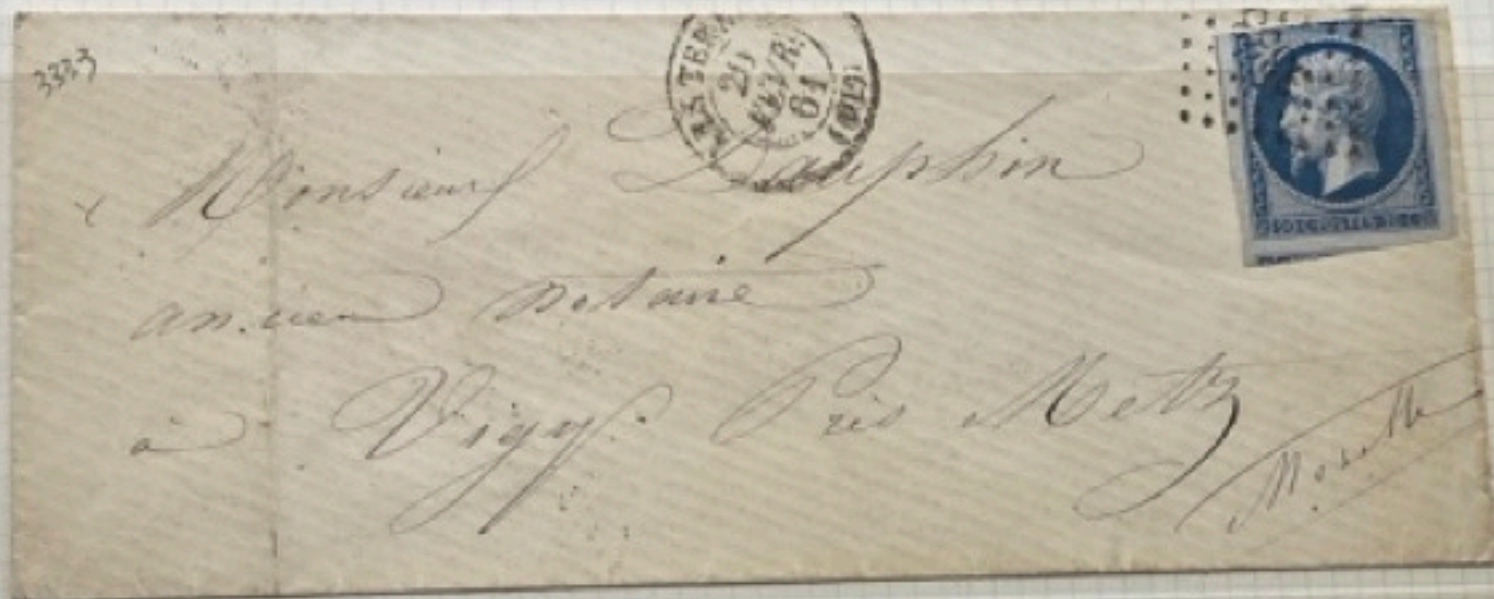 3323
20
FEVR.
61
Monsieur Dauphin
ancien notaire
à Vigy. Près Metz
Moselle